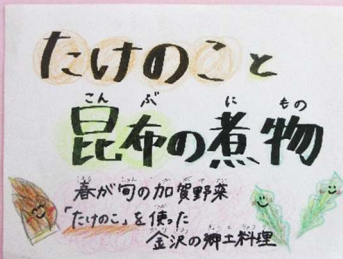 たけのこと
こんぶ にもの
昆布の煮物
春が旬の加賀野菜
「たけのこ」を使った
金沢の郷土料理